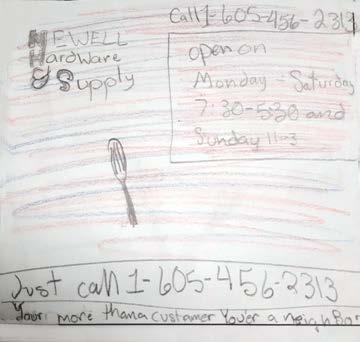 Call 1-605-456-2313
NEWELL
Hardware
& Supply
open on
Monday - Saturday
7:30-5:30 and
Sunday 11-3
Just call 1-605-456-2313
Your more than a custamer Your'er a neighbor